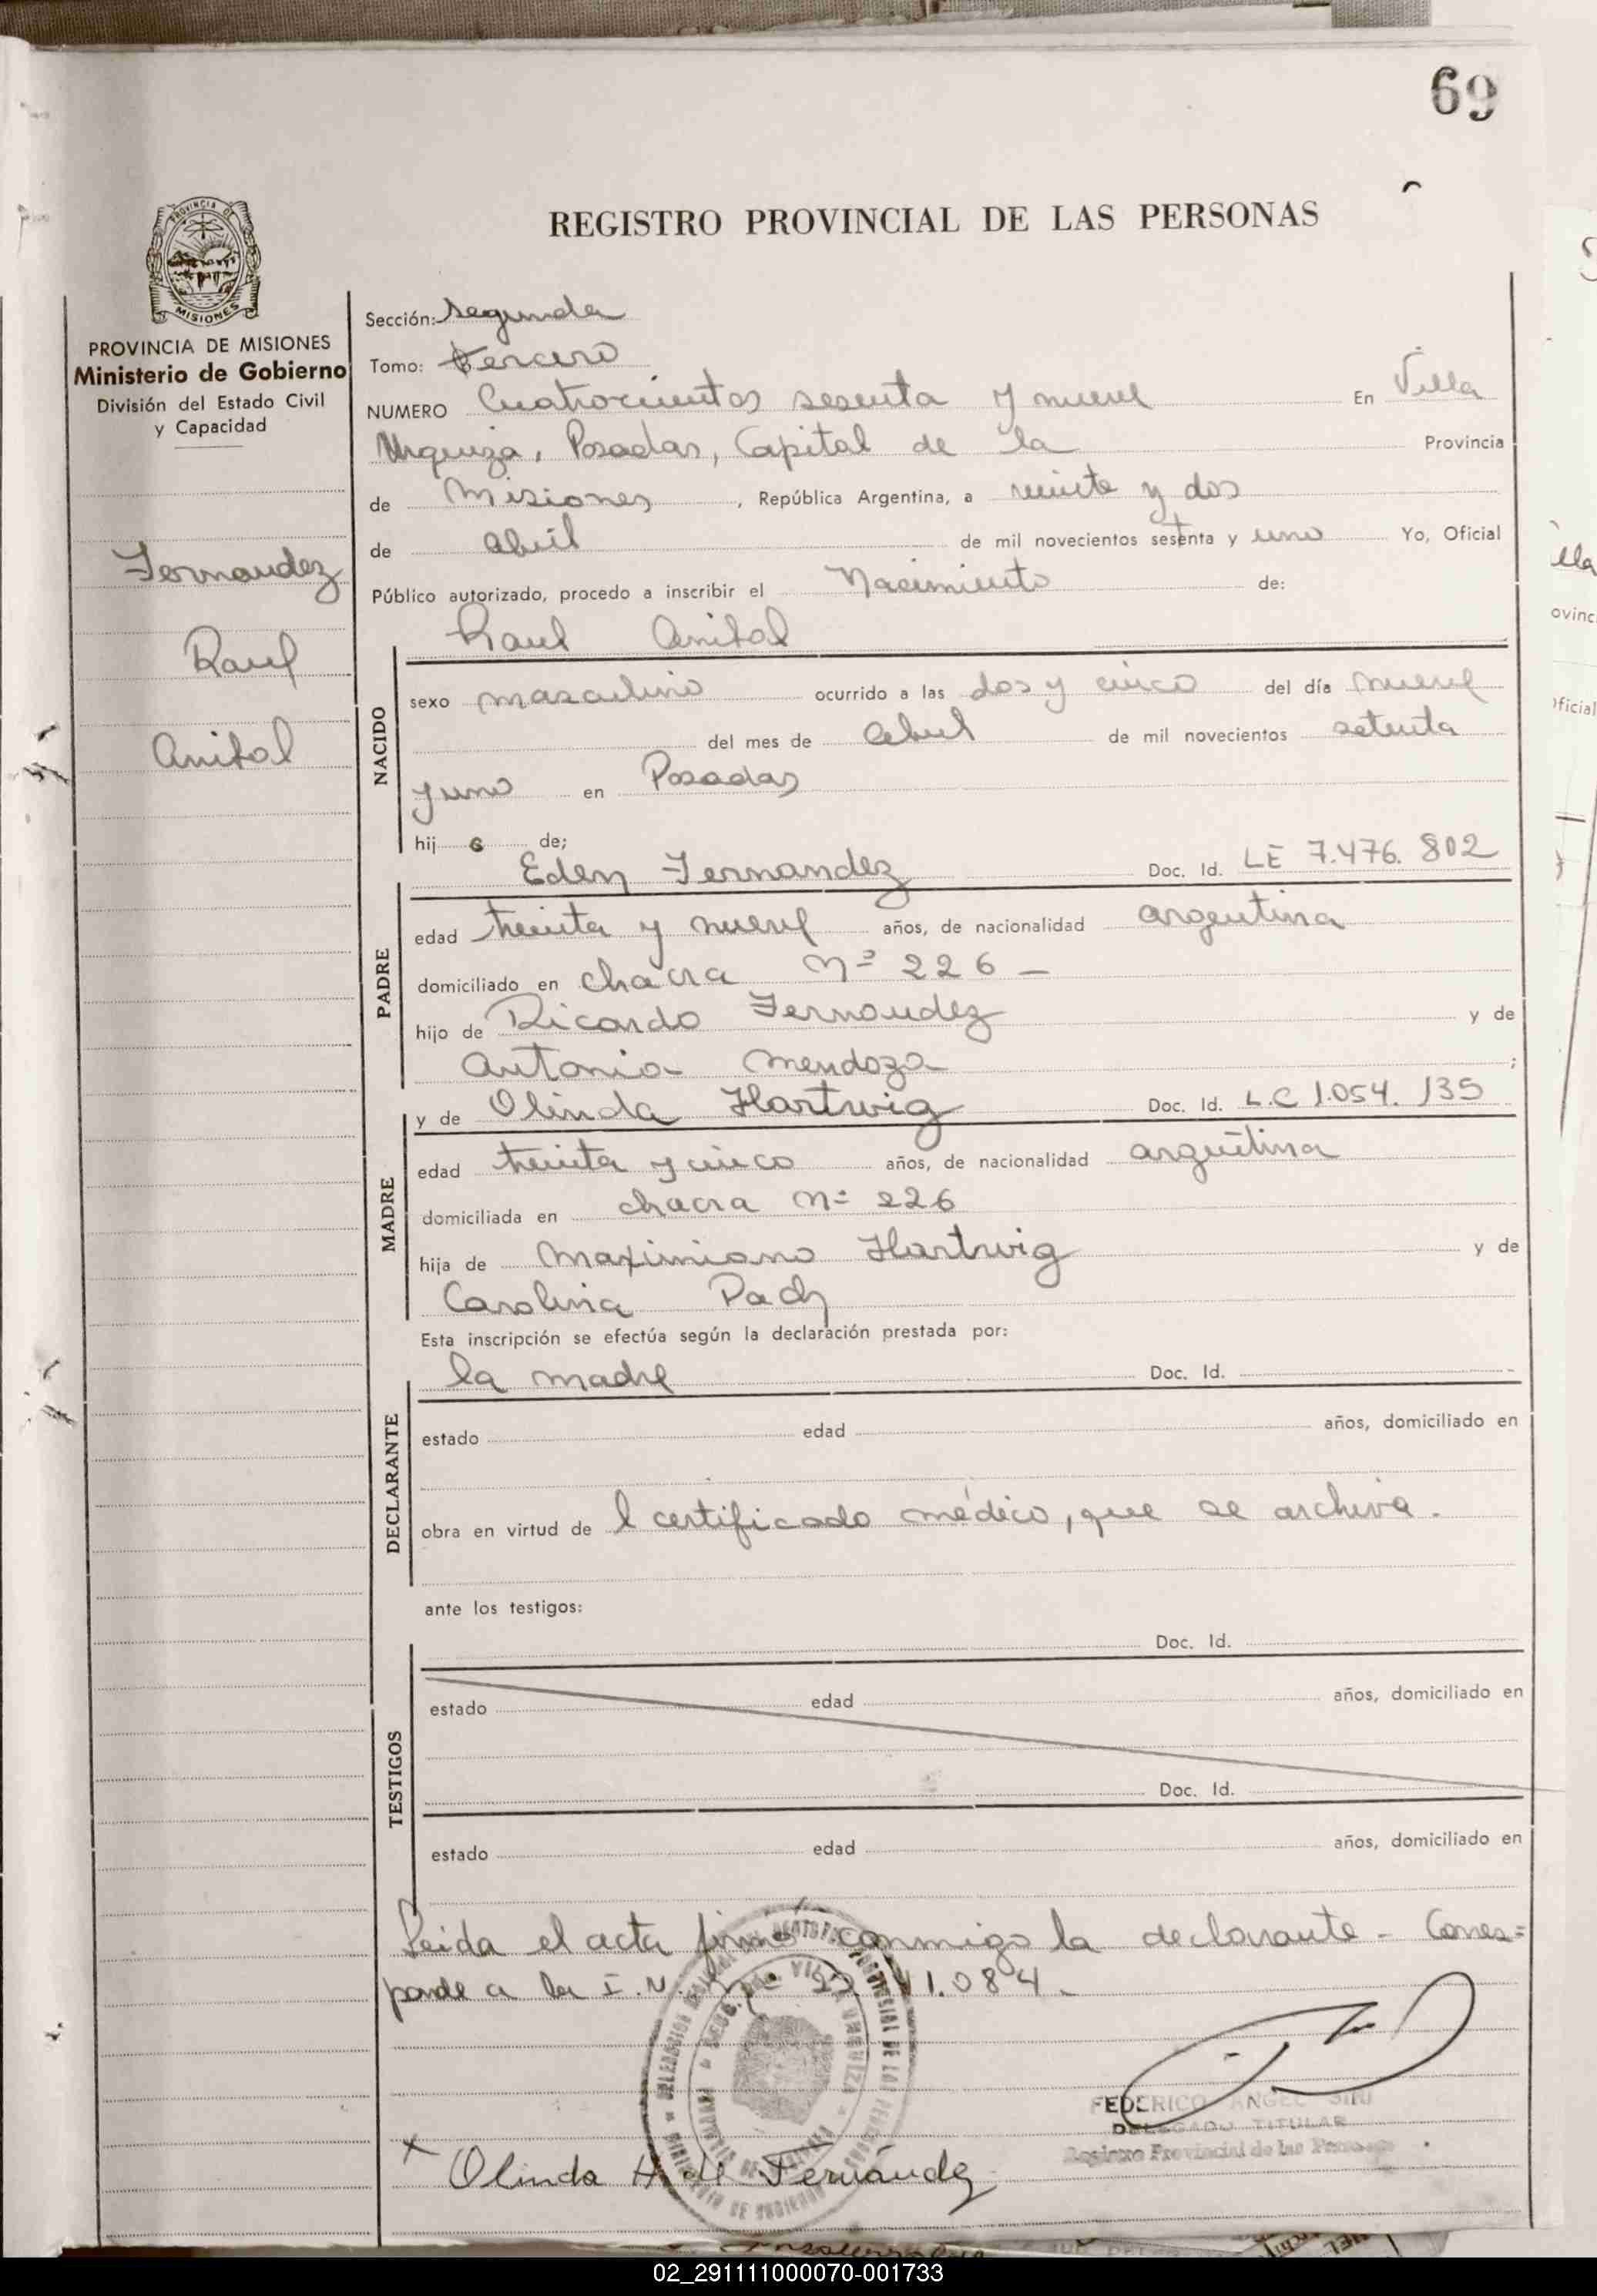 69
REGISTRO PROVINCIAL DE LAS PERSONAS
PROVINCIA DE MISIONES
PROVINCIA DE MISIONES
Ministerio de Gobierno
División del Estado Civil
y Capacidad
Fernandez
Raul
Anibal
Sección: Segunda
Tomo: tercero
NUMERO Cuatrocientos sesenta y nueve En Villa
Urquiza, Posadas, Capital de la Provincia
de Misiones, República Argentina, a veinte y dos
de abril de mil novecientos setenta y uno Yo, Oficial
Público autorizado, procedo a inscribir el Nacimiento de:
Raul Anibal
NACIDO
sexo masculino ocurrido a las dos y cinco del día nueve
del mes de abril de mil novecientos setenta
y uno en Posadas
hij o de;
Eden Fernandez Doc. Id. LE 7.476.802
PADRE
edad treinta y nueve años, de nacionalidad argentina
domiciliado en chacra nº 226 -
hijo de Ricardo Fernandez y de
Antonia Mendoza ;
y de Olinda Hartwig Doc. Id. L.C 1.054.135
MADRE
edad treinta y cinco años, de nacionalidad argentina
domiciliada en chacra nº 226
hija de Maximiano Hartwig y de
Carolina
Esta inscripción se efectúa según la declaración prestada por:
la madre Doc. Id.
DECLARANTE
estado edad años, domiciliado en
obra en virtud de l certificado médico, que se archiva.
ante los testigos:
Doc. Id.
TESTIGOS
estado edad años, domiciliado en
Doc. Id.
estado edad años, domiciliado en
Leida el acta firmó conmigo la declarante - Corres=
ponde a la I.N. nº 22.111.084.
FEDERICO ANGEL
DELEGADO TITULAR
Registro Provincial de las Personas
x Olinda H de Fernández
02_291111000070-001733